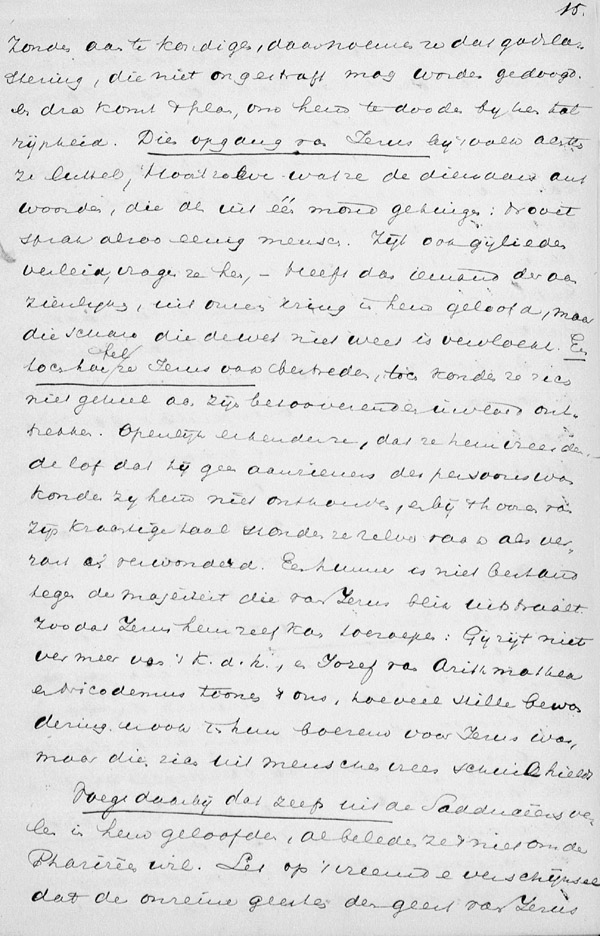 15.
zonden aan te kondigen, daar noemen ze dat godsla-
stering, die niet ongestraft mag worden gedoogd.
En dra komt 't plan, om hem te dooden bij hen tot
rijpheid. Dien opgang van Jezus bij 't volk achtte
ze luttel, want de dienaars ant
woorden, die als uit één mond getuigen: nooit
sprak alzoo eenig mensch. Zijt ook gijlieden
verleid, vragen ze hen, – Heeft dan iemand der aan
zienlijken, uit onzen kring in hem geloofd, maar
die schare die de wet niet weet is vervloekt. En
toch hoe fel ze Jezus ook bestreden, toch konden ze zich
niet geheel aan zijn betooverenden invloed ont-
trekken. Openlijk erkenden ze, dat ze hem vreesden
de lof dat hij geen aannemer des persoons was
konden zij hem niet onthouden, en bij 't hooren van
zijn krachtige taal stonden ze zelve vaak als ver-
rast en verwonderd. Een hunner is niet bestand
tegen de majesteit die van Jezus blik uitstraalt.
Zoodat Jezus hem zeef kan toeroepen: Gij zijt niet
ver meer van 't k. d. h., en Jozef van Arithmathea
en Nicodemus toonen 't ons, hoeveel stille bewon
dering ook in hun boezem voor Jezus was,
maar die zich uit menschenvrees schuil hield
Voeg daarbij dat zelfs uit de Sadduceërs ve-
len in hem geloofden, al beleden ze 't niet om der
Pharizeën wil. Let op 't vreemde verschijnsel
dat de onreine geesten den geest van Jezus